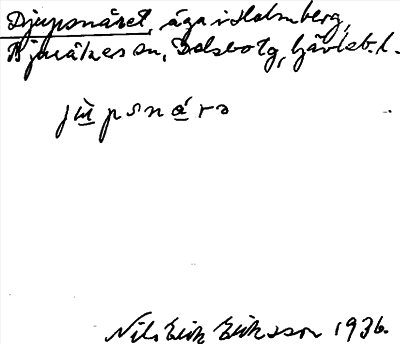 Djupsnäret, äga i Holmberg,
Bjuråkers sn, Delsbo tg, Gävleb. l.
jùpsná̱ra
Nils Erik Eriksson 1936.